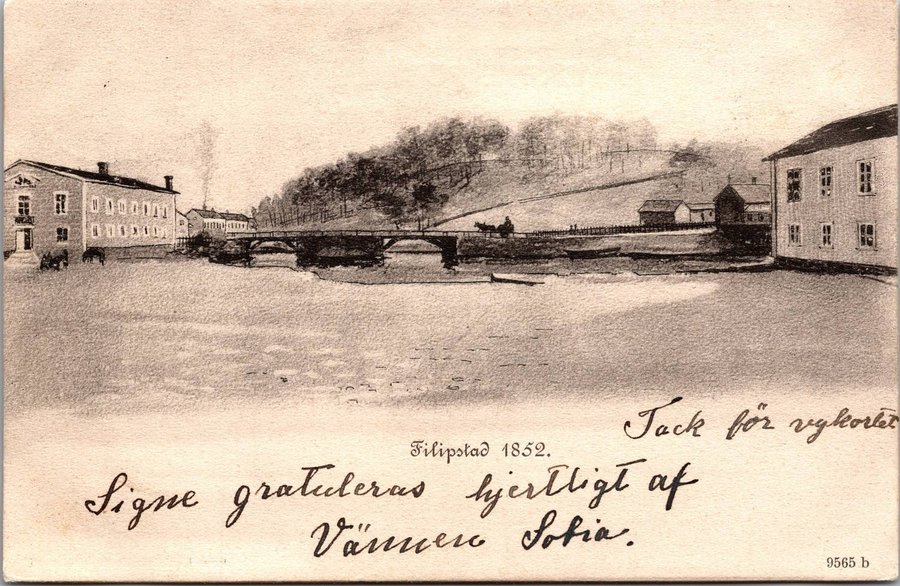 Tack för vykortet
Filipstad 1852.
Signe gratuleras hjertligt af
Vännen Sofia.
9565 b